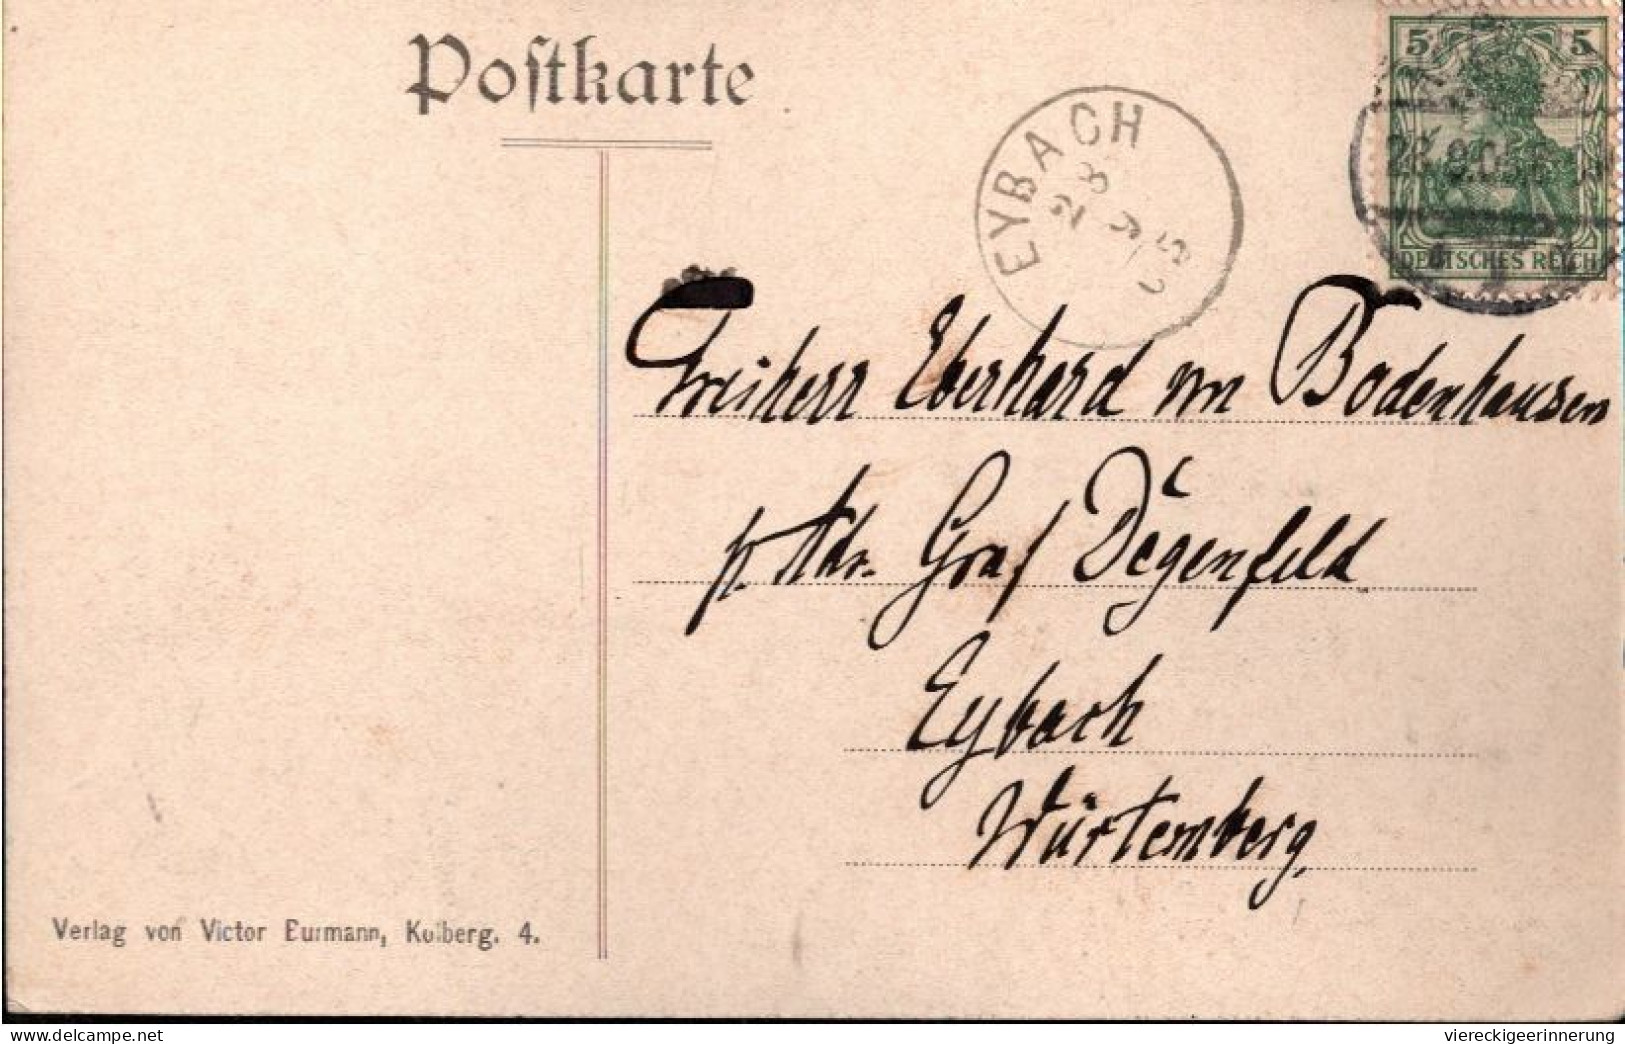 Postkarte
5 5
DEUTSCHES REICH
EYBACH
28 9
Freiherr Eberhard von Bodenhausen
p. Adr. Graf Degenfeld
Eybach
Württemberg.
Verlag von Victor Eurmann, Kolberg. 4.
delcampe.net
viereckigeerinnerung